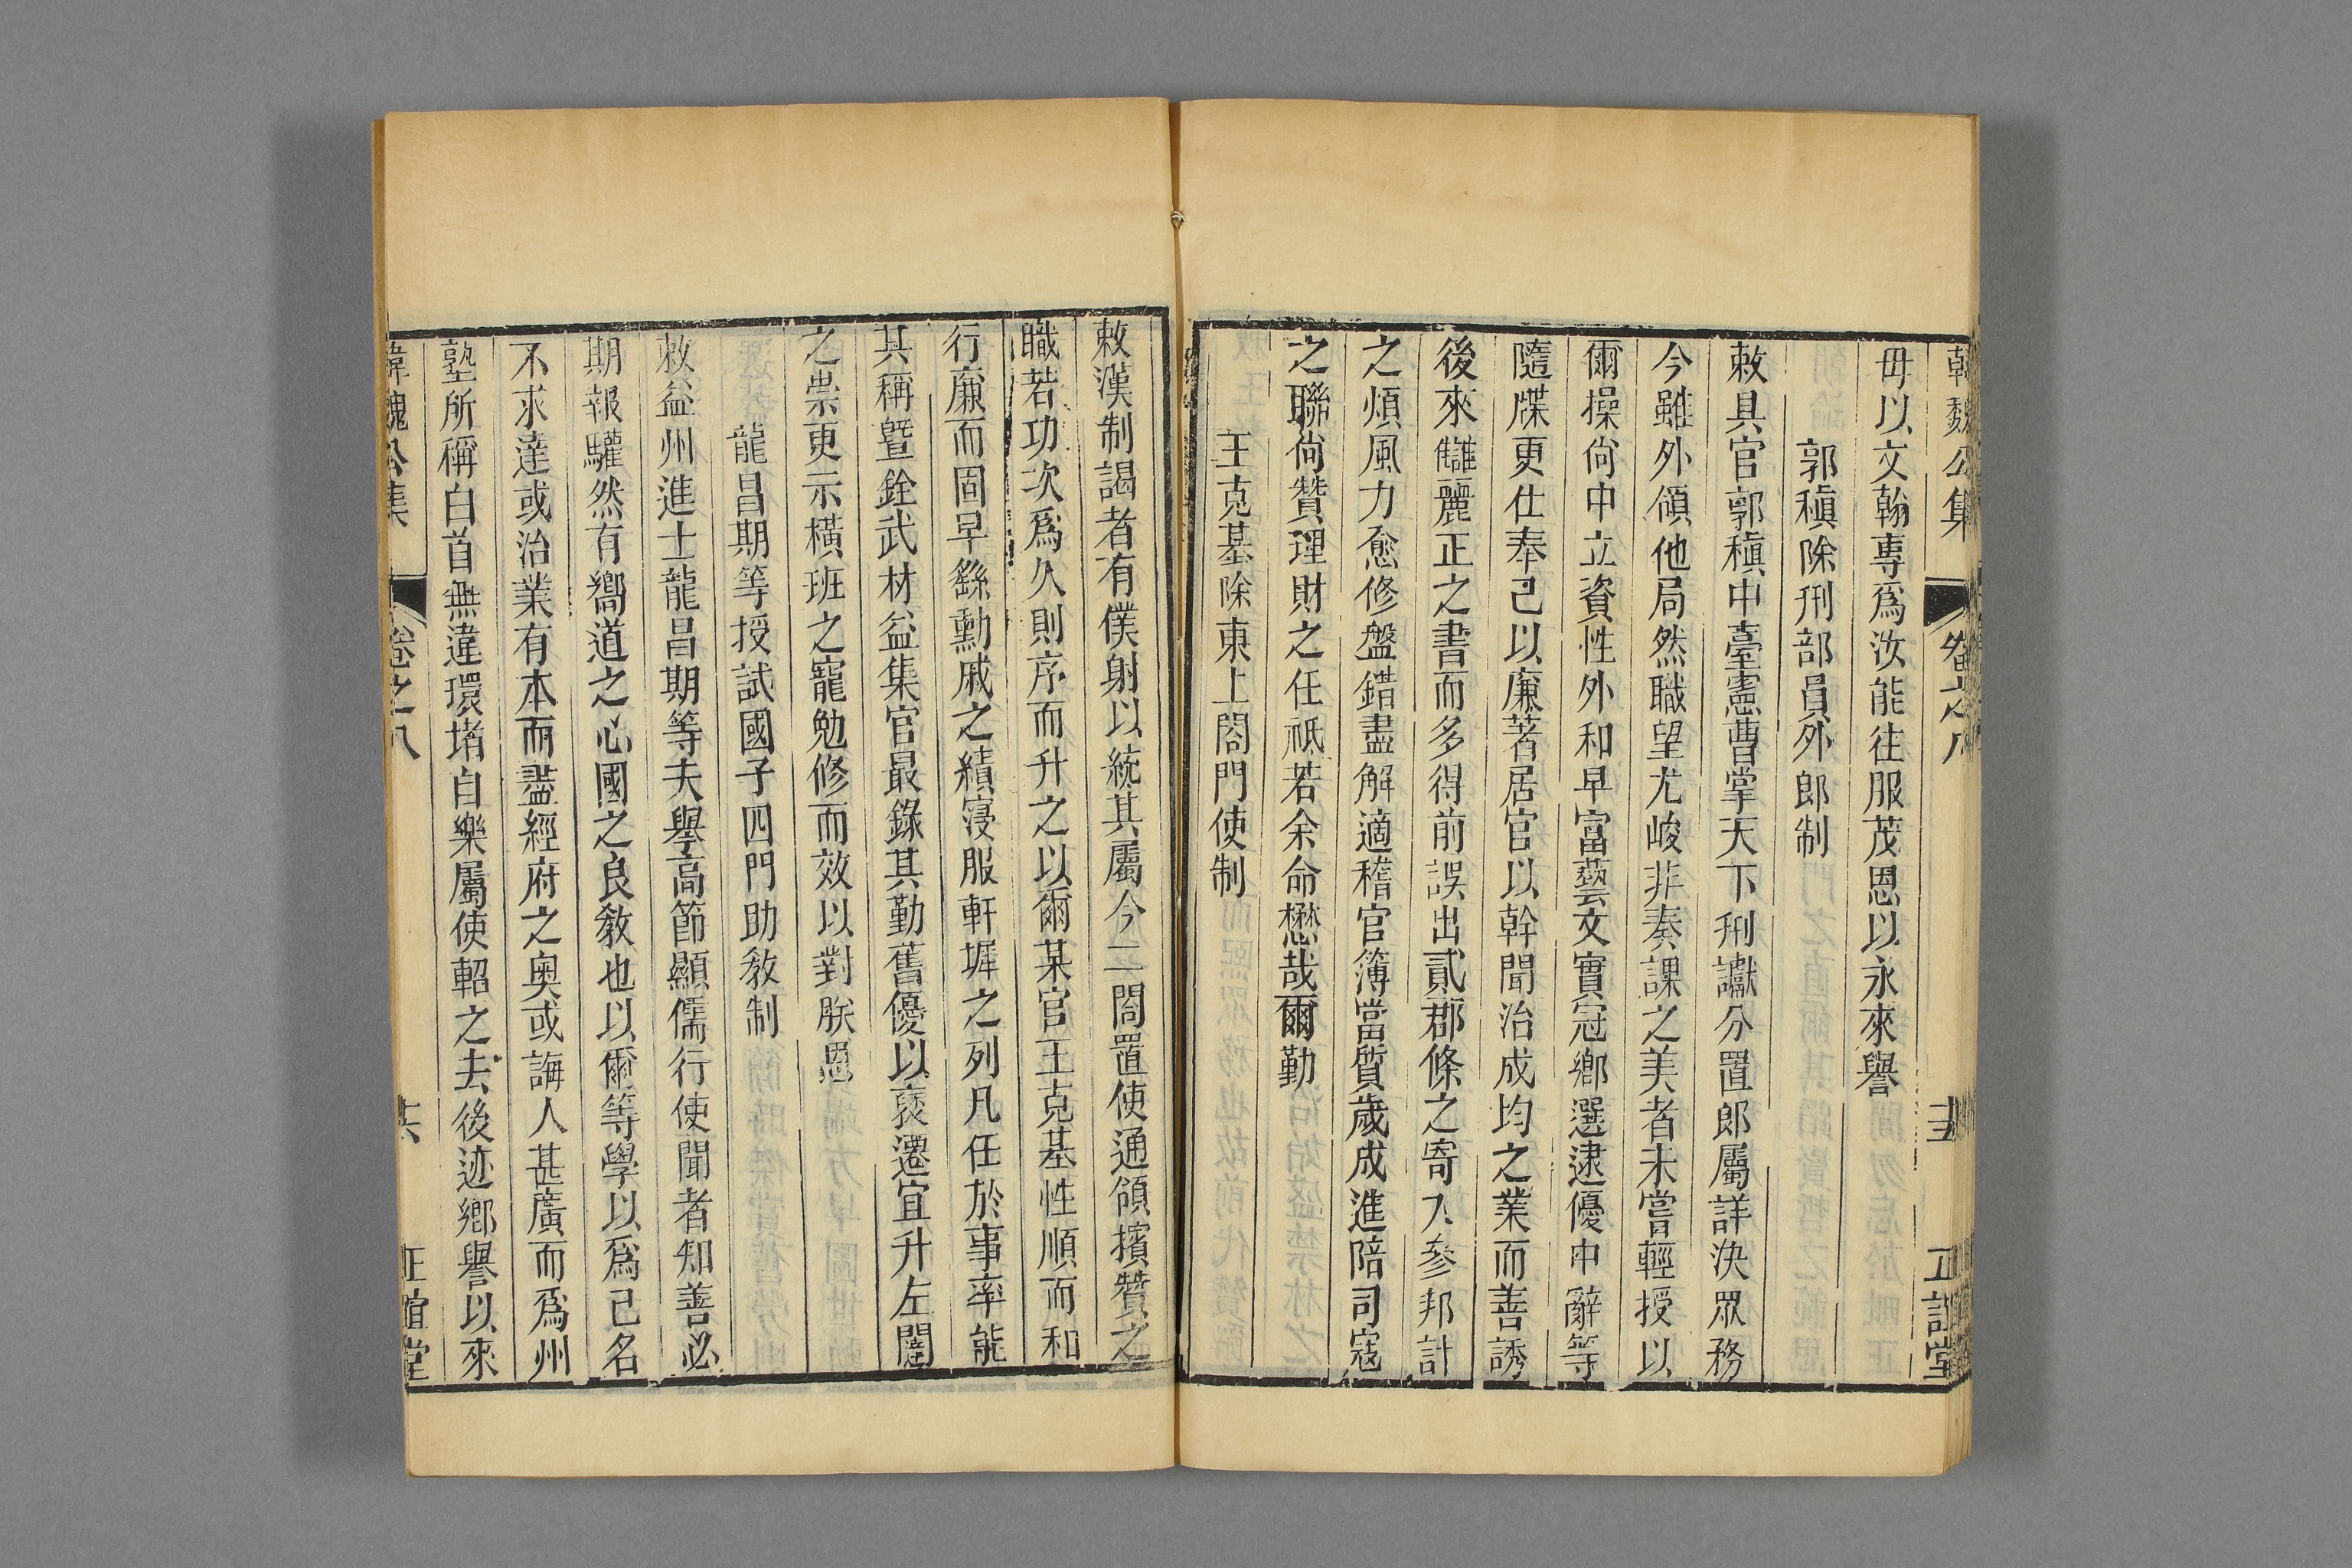 韓魏公集 卷之八 十五 正誼堂
毋以文翰專爲汝能往服茂恩以永來譽
郭稹除刑部員外郎制
敕具官郭稹中臺憲曹掌天下刑讞分置郎屬詳決眾務
今雖外領他局然職望尤峻非奏課之美者未嘗輕授以
爾操尙中立資性外和早富藝文實冠鄉選逮優中辭等
隨牒更仕奉己以廉著居官以幹聞治成均之業而善誘
後來讎麗正之書而多得前誤出貳郡條之寄入參邦計
之煩風力愈修盤錯盡解適稽官簿當質歲成進陪司寇
之聯尙贊理財之任祗若余命懋哉爾勤
王克基除東上閤門使制
敕漢制謁者有僕射以統其屬今二閤置使通領擯贊之
職若功次爲久則序而升之以爾某官王克基性順而和
行廉而固早繇勳戚之績寖服軒墀之列凡任於事率能
其稱曁銓武材益集官最錄其勤舊優以褒遷宜升左闥
之崇更示橫班之寵勉修而效以對朕恩
龍昌期等授試國子四門助敎制
敕益州進士龍昌期等夫舉高節顯儒行使聞者知善必
期報驩然有嚮道之心國之良敎也以爾等學以爲己名
不求達或治業有本而盡經府之奥或誨人甚廣而爲州
塾所稱白首無違環堵自樂屬使軺之去後迹鄉譽以來
韓魏公集 卷之八 十六 正誼堂